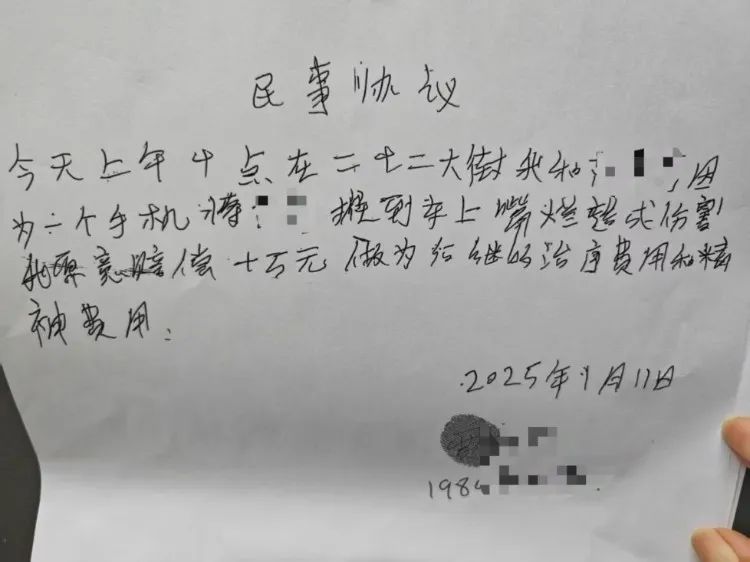 民事协议
今天上午十点在二七二大街我和 因
为一个手机将 推到车上嘴烂造成伤害
我愿意赔偿 十万元 做为后继的治疗费用和精
神费用.
2025年9月11日
198